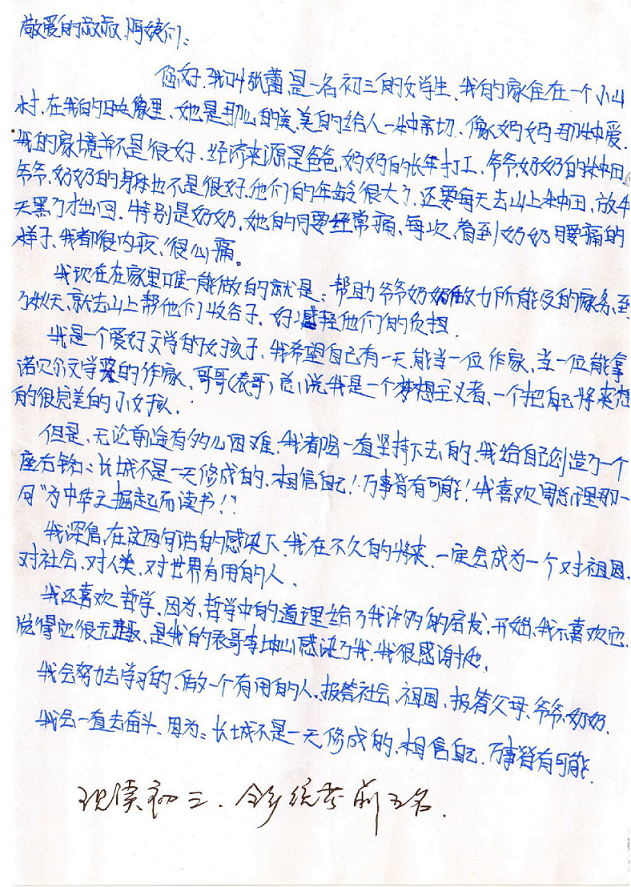 敬爱的叔叔、阿姨们:
您好、我叫张蕾是一名初三的女学生、我的家住在一个小山
村、在我的映像里、她是那么的美、美的给人一种亲切、像妈妈那种爱。
我的家境并不是很好、经济来源是爸爸、妈妈的长年打工、爷爷奶奶的种田
爷爷、奶奶的身体也不是很好、他们的年龄很大了、还要每天去山上种田、放牛
天黑了才出回、特别是奶奶、她的腰经常痛、每次、看到奶奶腰痛的
样子、我都很内疚、很心痛。
我现在在家里唯一能做的就是:帮助爷爷奶奶做力所能及的家务、到
了秋天、就去山上帮他们收谷子、好减轻他们的负担.
我是一个爱好文学的女孩子、我希望自己有一天、能当一位作家、当一位能拿
诺贝尔文学奖的作家、哥哥(表哥)总说我是一个梦想主义者、一个把自己将来想
的很完美的小女孩.
但是、无论前途有多么困难、我都会一直坚持下去的、我给自己创造了一个
座右铭:长城不是一天修成的、相信自己!万事皆有可能!我喜欢周总理那一
句"为中华之掘起而读书!"
我深信、在这两句话的感染下、我在不久的将来、一定会成为一个对祖国、
对社会、对人类、对世界有用的人.
我还喜欢哲学、因为、哲学中的道理给了我许多的启发、开始、我不喜欢它、
觉得它很无趣、是我的表哥李坤山感诞了我、我很感谢他.
我会努力去学习的、做一个有用的人、报答社会、祖国、报答父母、爷爷、奶奶.
我会一直去奋斗、因为:长城不是一天修成的、相信自己、万事皆有可能.
现读初三.全乡统考前五名.